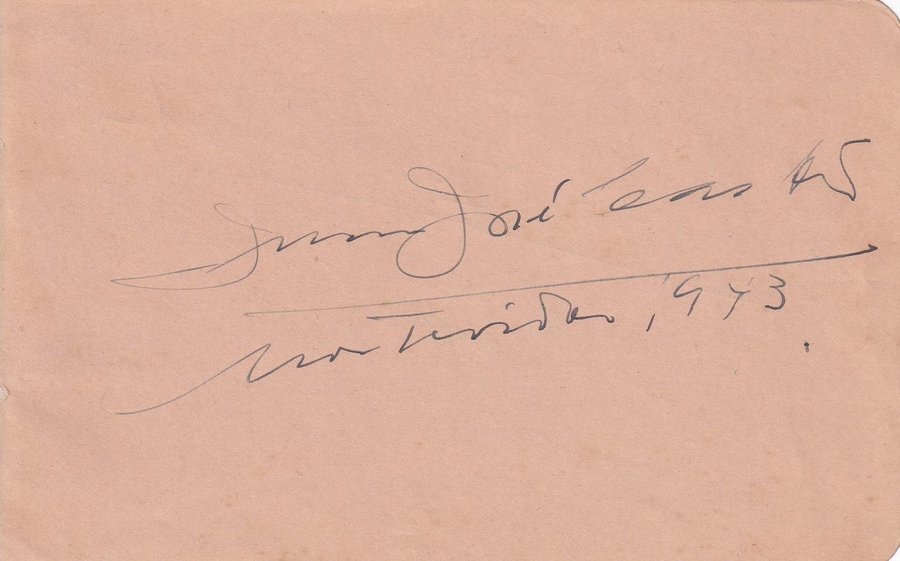 Juan José Castro
Montevideo, 1943.